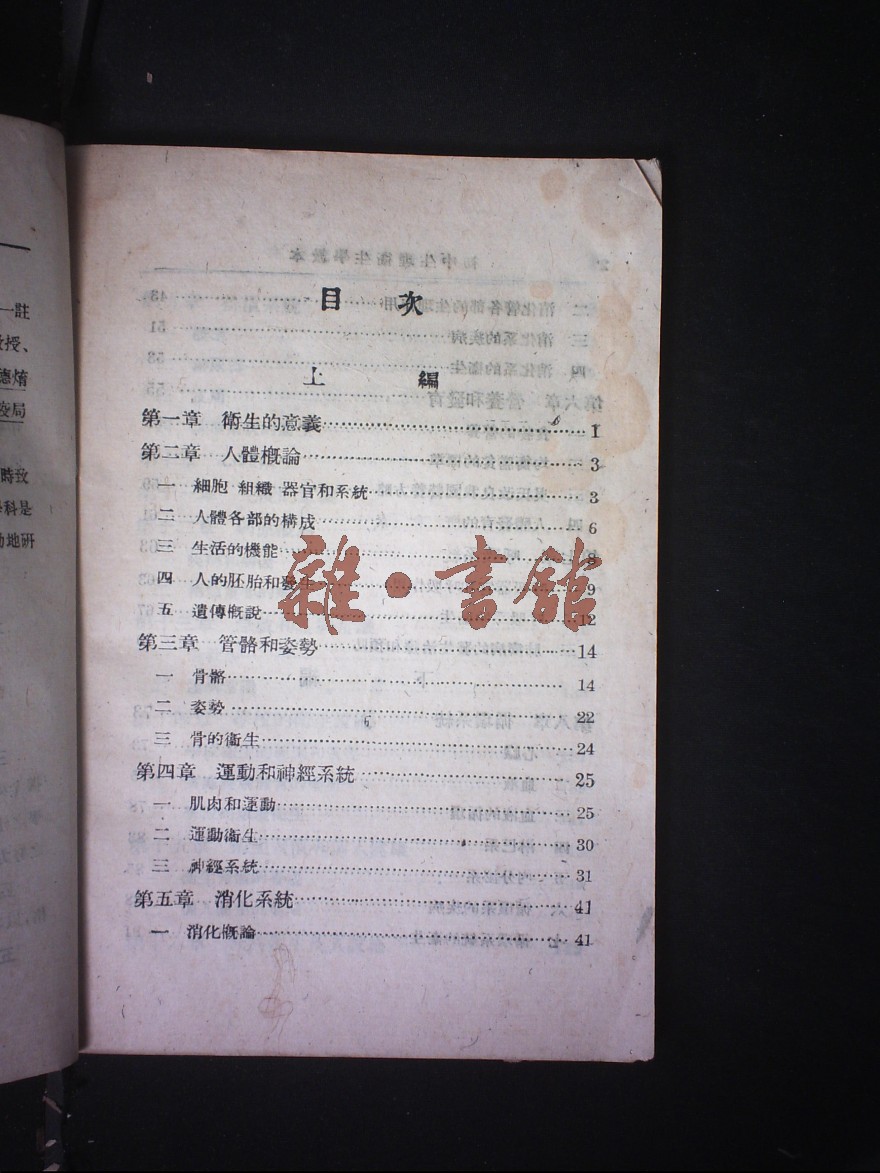 一註
授、
德煃
疫局
時致
學科是
動地研
目 次
上 編
第一章 衞生的意義 1
第二章 人體概論 3
一 細胞 組織 器官和系統 3
二 人體各部的構成 6
三 生活的機能 8
四 人的胚胎和發生 9
五 遺傳概説 12
第三章 管骼和姿勢 14
一 骨骼 14
二 姿勢 22
三 骨的衞生 24
第四章 運動和神經系統 25
一 肌肉和運動 25
二 運動衞生 30
三 神經系統 31
第五章 消化系統 41
一 消化概論 41
雜·書館